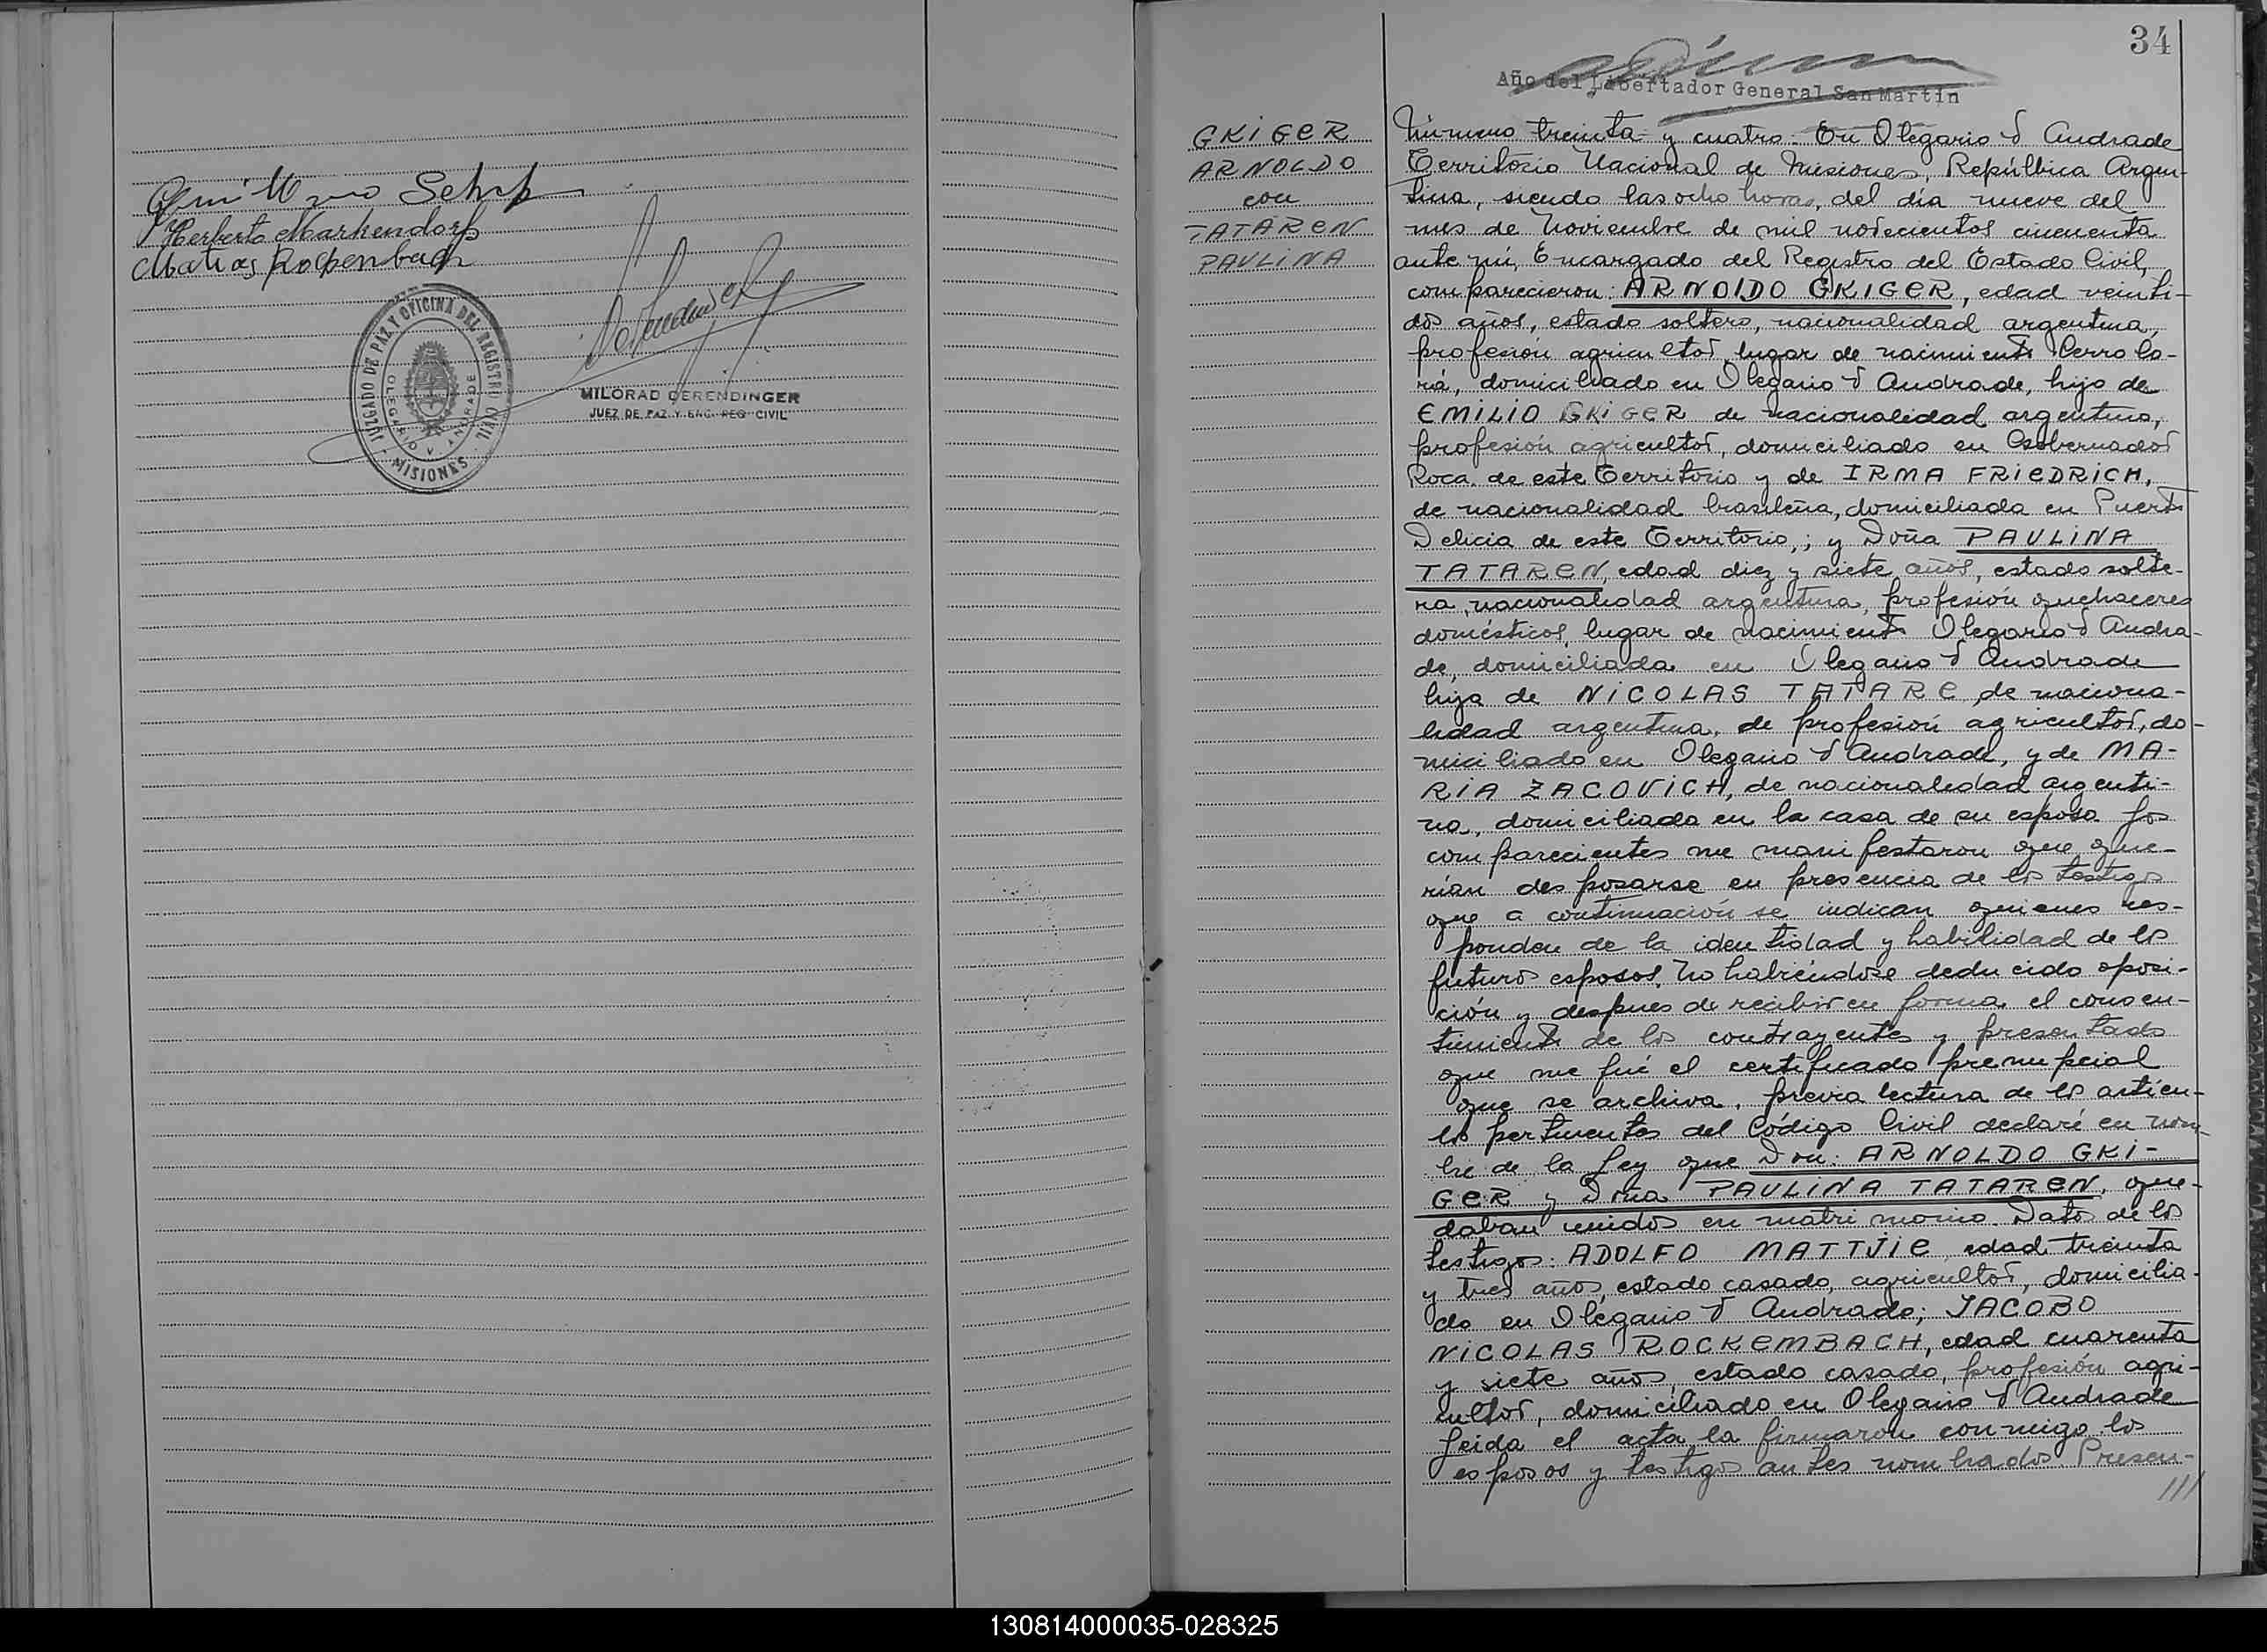 Herberto Markendorf
Matias Rockenbach
JUZGADO DE PAZ Y OFICINA DEL REGISTRO CIVIL
OLEGARIO V. ANDRADE
MISIONES
MILORAD DERENDINGER
JUEZ DE PAZ Y ENC. REG. CIVIL
34
Año del Libertador General San Martín
GKIGER
ARNOLDO
con
TATAREN
PAULINA
Número treinta y cuatro. En Olegario V Andrade
Territorio Nacional de Misiones, República Argen-
tina, siendo las ocho horas, del día nueve del
mes de Noviembre de mil novecientos cincuenta
ante mí, Encargado del Registro del Estado Civil,
comparecieron: ARNOLDO GKIGER, edad veinti-
dós años, estado soltero, nacionalidad argentina,
profesión agricultor, lugar de nacimiento Cerro Co-
rá, domiciliado en Olegario V Andrade, hijo de
EMILIO GKIGER de nacionalidad argentina,
profesión agricultor, domiciliado en Gobernador
Roca de este Territorio y de IRMA FRIEDRICH,
de nacionalidad brasileña, domiciliada en Puerto
Delicia de este Territorio,; y Doña PAULINA
TATAREN, edad diez y siete años, estado solte-
ra, nacionalidad argentina, profesión quehaceres
domésticos, lugar de nacimiento Olegario V Andra-
de, domiciliada en Olegario V Andrade
hija de NICOLAS TATARE, de naciona-
lidad argentina, de profesión agricultor, do-
miciliado en Olegario V Andrade, y de MA-
RIA ZACOVICH, de nacionalidad argenti-
na, domiciliada en la casa de su esposo. Los
comparecientes me manifestaron que que-
rían desposarse en presencia de los testigos
que a continuación se indican quienes res-
ponden de la identidad y habilidad de los
futuros esposos. No habiéndose deducido oposi-
ción y despues de recibir en forma el consen-
timiento de los contrayentes y presentado
que me fué el certificado prenupcial
que se archiva, previa lectura de los artícu-
los pertinentes del Código Civil declaré en nom-
bre de la Ley que Don: ARNOLDO GKI-
GER y Doña PAULINA TATAREN, que-
daban unidos en matrimonio. Datos de los
testigos: ADOLFO MATTJIE edad treinta
y tres años, estado casado, agricultor, domicilia-
do en Olegario V Andrade; JACOBO
NICOLAS ROCKEMBACH, edad cuarenta
y siete años, estado casado, profesión agri-
cultor, domiciliado en Olegario V Andrade
Leida el acta la firmaron conmigo los
esposos y testigos antes nombrados. Presen-
///
130814000035-028325